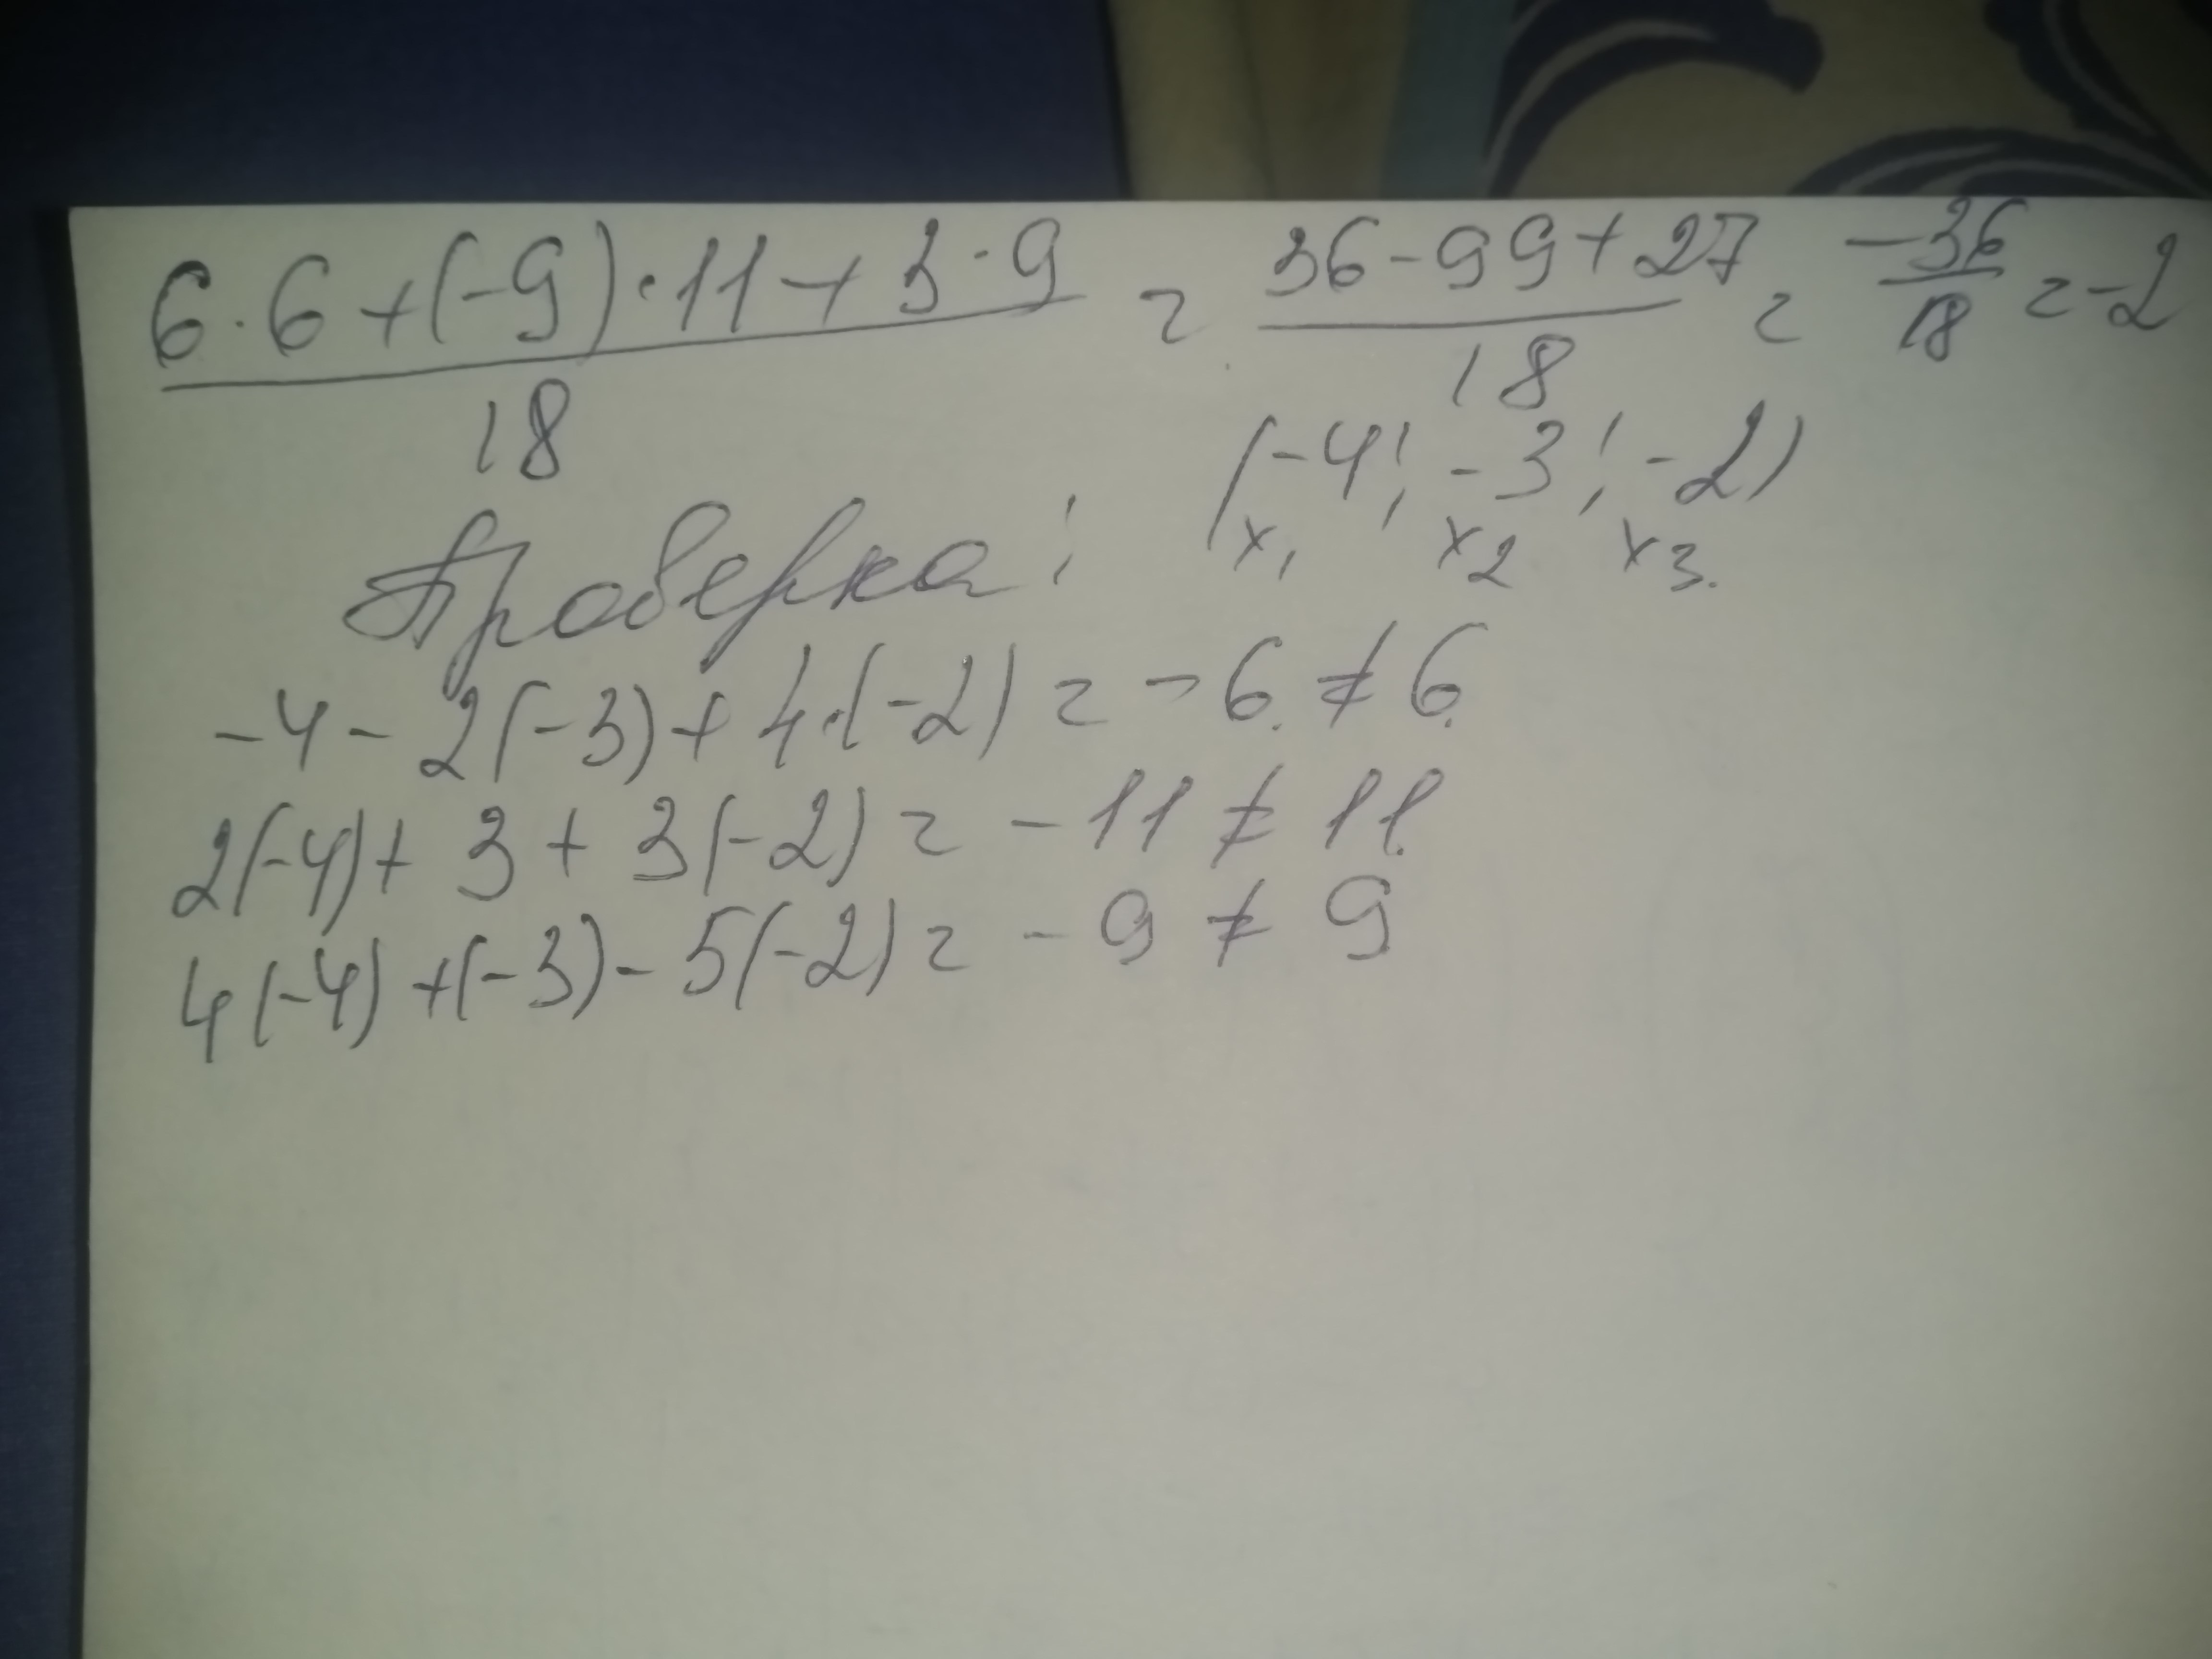 6·6+(-9)·11+3·9 = 36-99+27 = -36 = -2
18 18 18
(-4; -3; -2)
x₁ x₂ x₃.
Проверка:
-4-2(-3)+4·(-2)=-6≠6
2(-4)+3+3(-2)=-11≠11
4(-4)+(-3)-5(-2)=-9≠9